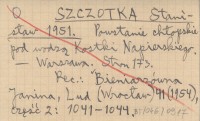 O SZCZOTKA Stani-
sław 1951. Powstanie chłopskie
pod wodzą Kostki Napierskiego.
— Warszawa. Stron 173.
Rec.: Bieniarzówna
Janina, Lud (Wrocław) 41 (1954),
część 2: 1041-1044.